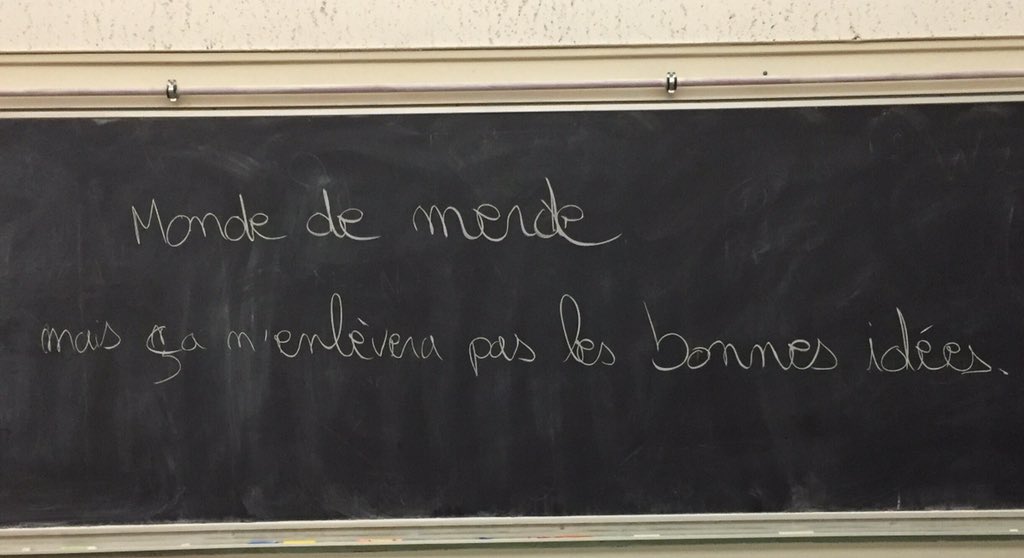 Monde de merde
mais ça n'enlèvera pas les bonnes idées.